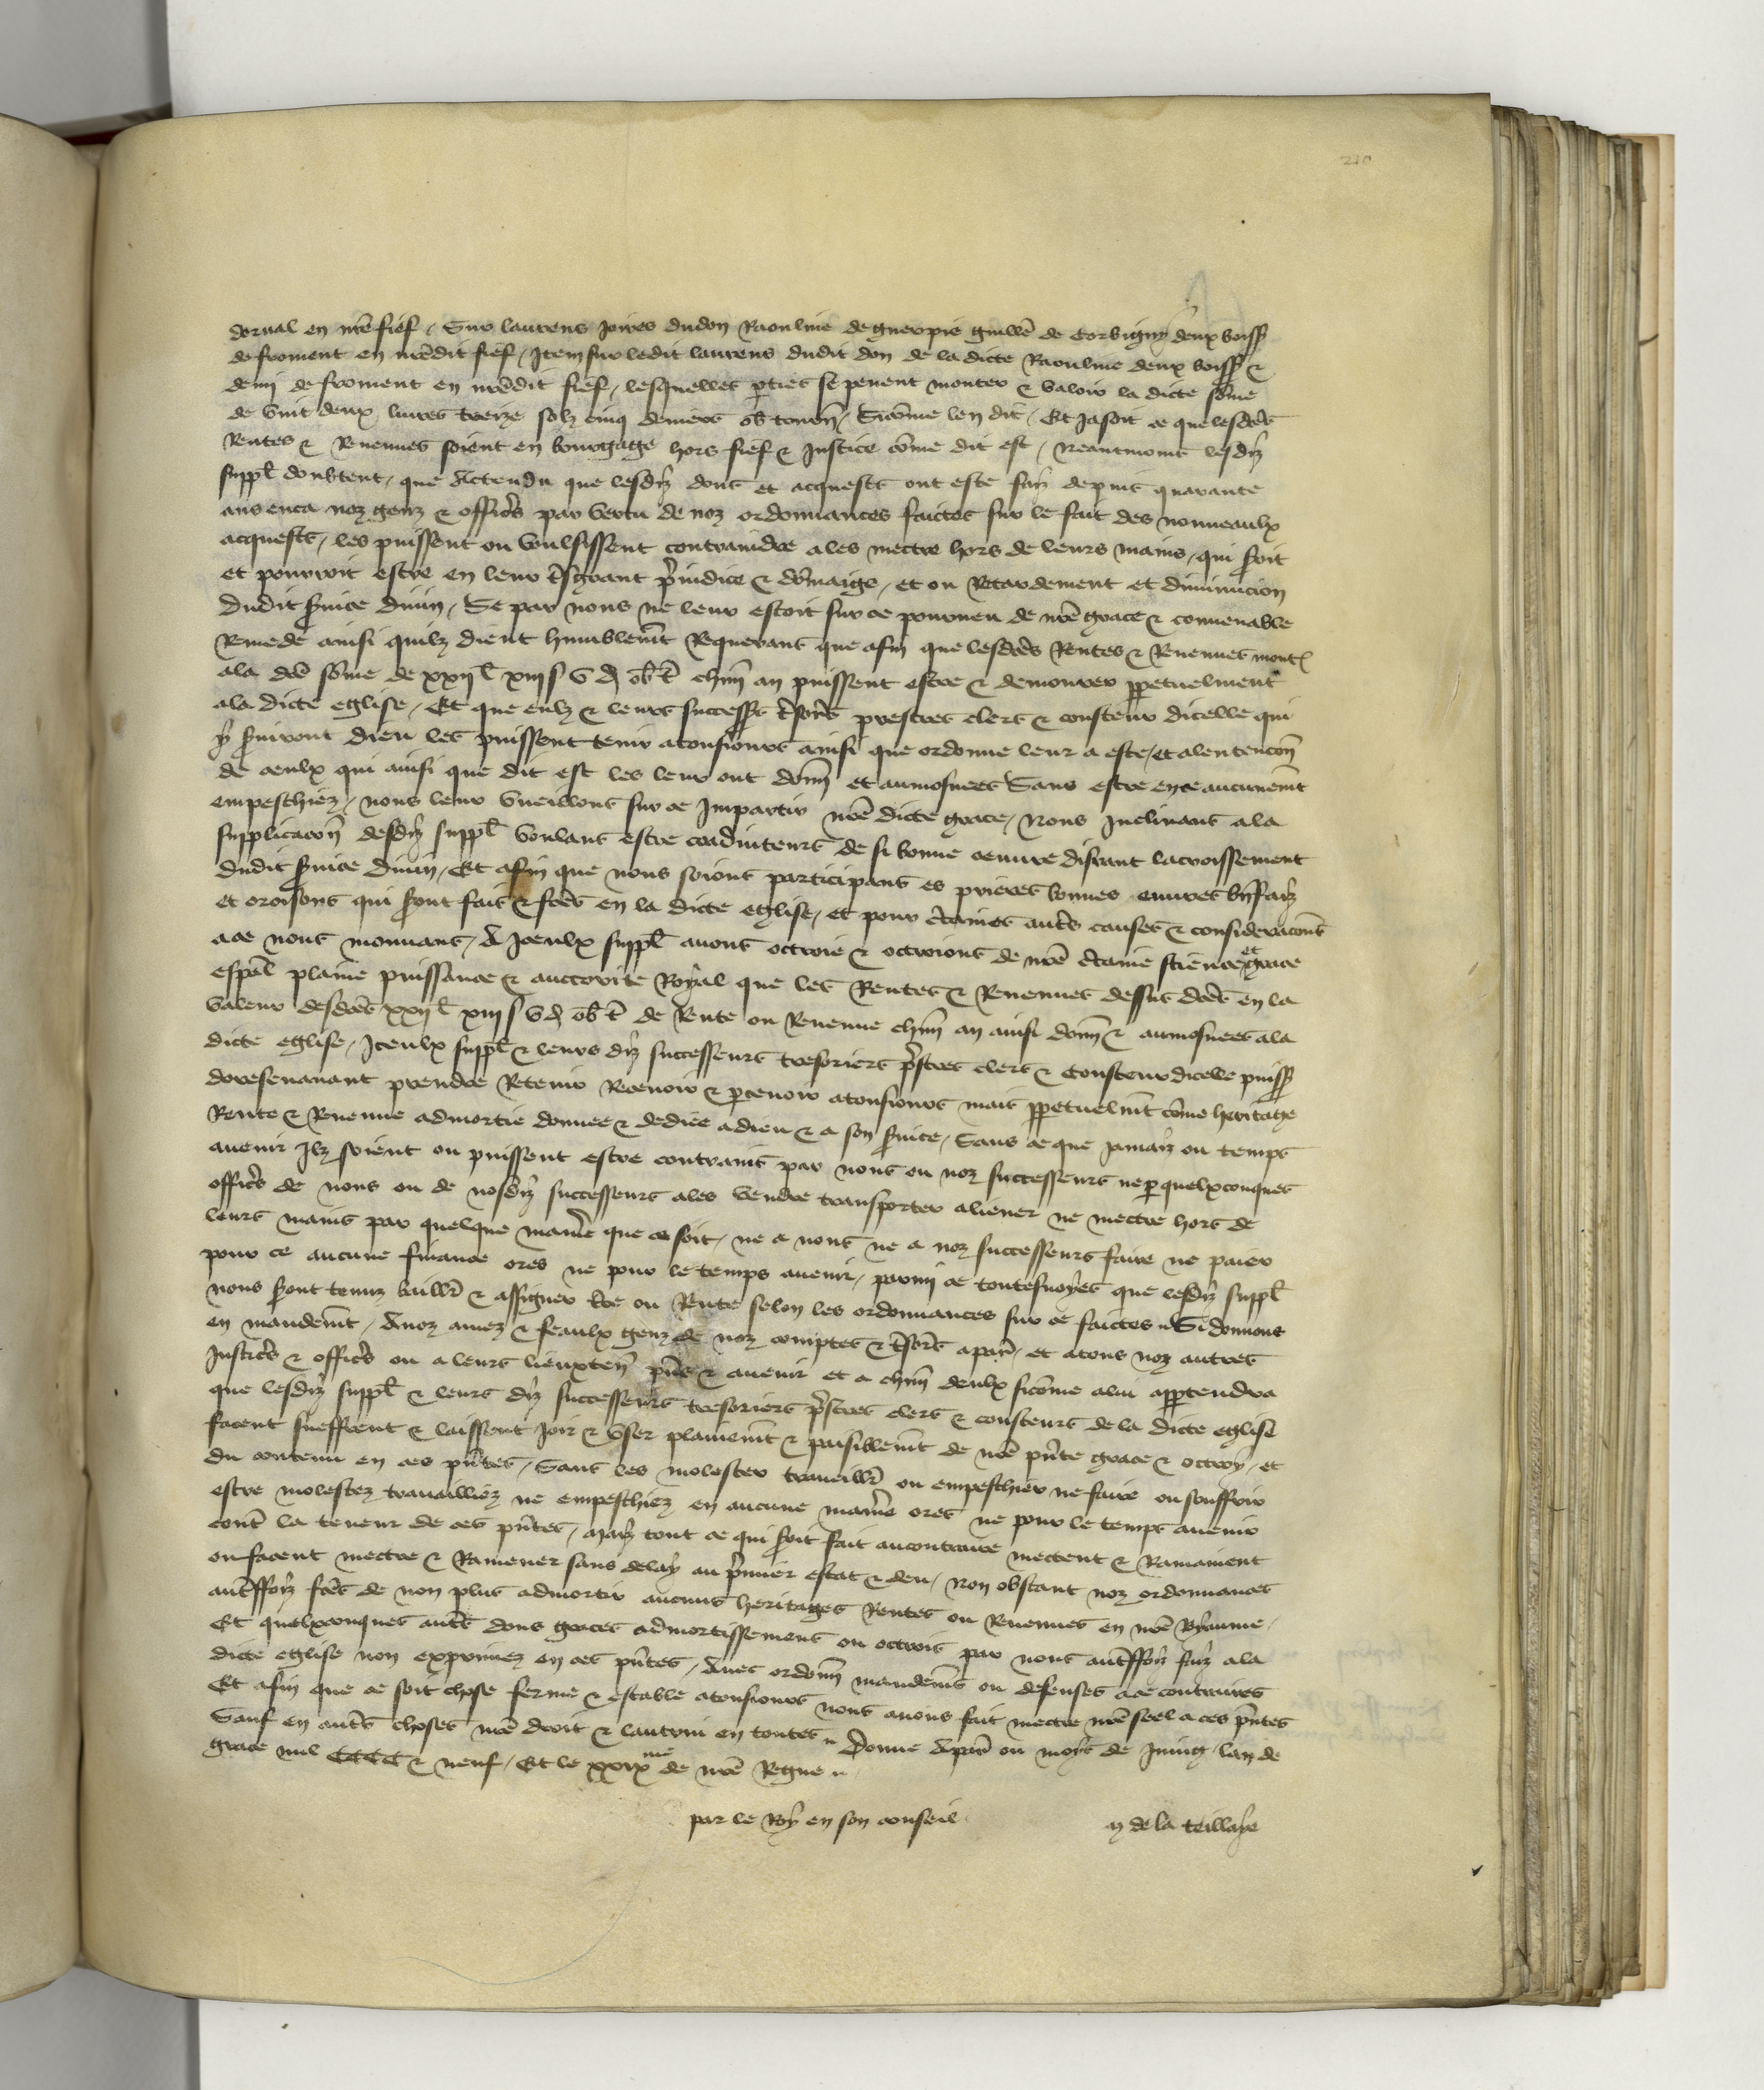 210
dorval en nr̄e fief / Sur laurens Joires du don Raouline de guerpie guillē de Corbigny deux boiss̄
de froment en nr̄edit fief / Item sur ledit laurens dudit don de la dicte Raouline deux boiss̄ &
demi de froment en nr̄edit fief / lesquelles p̄ties se peuent monter & valoir la dicte sōme
de vint deux livres treize solz cinq deniers ob tourn̄ / Sicōme len dit / Et Jasoit ce que lesdc̄es
Rentes & Revenues soient en bourgage hors fief & Justice cōme dit est / Neantmoins lesdiz
suppl̄ doubtent / que Actendu que lesdiz dons et acquests ont este faiz depuis quarante
ans enca noz genz & officr̄s par vertu de noz ordonnances faictes sur le fait des nouveaulx
acquests / les puissent ou voulsissent contraindre a les mectre hors de leurs mains / qui s̄oit
et pourroit estre en leur tr̄sgrant p̄iudice & dōmaige / et ou Retardement et diminucion
dudit s̄vice divin / Se par nous ne leur estoit sur ce pourveu de nr̄e grace & convenable
Remede ainsi quilz dient humblemēt Requerans que afin que lesdc̄es Rentes & Revenues mont̄
ala dc̄e sōme de xxij l̄ xiij s v d ob t̄ chūn an puissent estre & demourer p̄petuelment
ala dicte eglise / Et que eulx & leurs successr̄s tr̄sorr̄s prestres clers & cousteur dicelle qui
y s̄viront dieu les puissent tenir atousiours ainsi que ordonne leur a este / et alentencōn
de ceulx qui ainsi que dit est les leur ont donn̄ et aumosnees Sans estre en ce aucunemēt
empeschiez / nous leur vueillons sur ce Impartir nr̄e dicte grace / Nous Inclinans ala
supplicacōn desdiz suppl̄ voulans estre coadiuteurs de si bonne oeuvre disirant lacroissement
dudit s̄vice divin / Et afin que nous soions participans es prieres bonnes euvres bn̄faiz
et oroisons qui s̄ont fais & fc̄es en la dicte eglise / et pour c̄taines autr̄s causes & consideracōns
ace nous mouvans / A Iceulx suppl̄ avons octroie & octroions de nr̄e c̄taine science et grace
esp̄al plaine puissance & auctorite Royal que les Rentes & Revenues dessus dc̄es en la
valeur desdc̄es xxij l̄ xiij s v d ob t̄ de Rente ou Revenue chūn an ainsi donn̄ & aumosnees ala
dicte eglise / Iceulx suppl̄ & leurs diz successeurs tresoriers p̄stres clers & Cousteur dicelle puiss̄
doresenavant prendre Retenir Recevoir & p̄cevoir atousiours mais p̄petuelmēt cōme heritage
Rente & Revenue admortie donnee & dediee a dieu & a son s̄vice / Sans ce que jamaiz ou temps
avenir Ilz soient ou puissent estre contrains par nous ou noz successeurs ne p̄ quelxconques
officr̄s de nous ou de nosdiz successeurs ales vendre transporter aliener ne mectre hors de
leurs mains par quelque manr̄e que ce soit / ne a nous ne a noz successeurs faire ne paier
pour ce aucune finance ores ne pour le temps avenir / parmi ce toutesvoyes que lesdiz suppl̄
nous s̄ont tenuz baillr̄ & assigner tr̄e ou Rente selon les ordonnances sur ce faictes // Si donnons
en mandemēt / Anoz amez & feaulx genz de noz comptes & tr̄sorr̄s a par̄ / et atous noz autres
Justicr̄s & officr̄s ou a leurs lieuxten̄ pn̄s & avenir et a chūn deulx sicōme alui app̄tendra
que lesdiz suppl̄ & leurs diz successeurs tresoriers p̄stres clers & cousteurs de la dicte eglise
facent sueffrent & laissent Joir & user plainemēt & paisiblemēt de nr̄e pn̄te grace & octroy / et
du contenu en ces pn̄tes / Sans les molester traveillr̄ ou empeschier ne faire ou souffrir
estre molestez travailliez ne empeschiez en aucune manr̄e ores ne pour le temps avenir
contr̄ la teneur de ces pn̄tes / Maiz tout ce qui s̄oit fait aucontraire mectent & Ramainent
ou facent mectre & Ramener sans delay au p̄mier estat & deu / Non obstant noz ordonnances
autr̄ffoiz fc̄es de non plus admortir aucuns heritages Rentes ou Revenues en nr̄e Royaume /
Et quelxconques autr̄s dons graces admortissemens ou octrois par nous autr̄ffoiz faiz ala
dicte eglise non exprimez en ces pn̄tes / Avec ordonn̄ mandemēs ou defenses ace contraires
Et afin que ce soit chose ferme & estable atousiours nous avons fait mectre nr̄e seel a ces pn̄tes
Sauf en autr̄s choses nr̄e droit & lautrui en toutes // Donne A par̄ ou moys de Juing lan de
grace mil CCCC & neuf / Et le xxix me de nr̄e Regne //
par le Roy en son conseil
de la teillaye